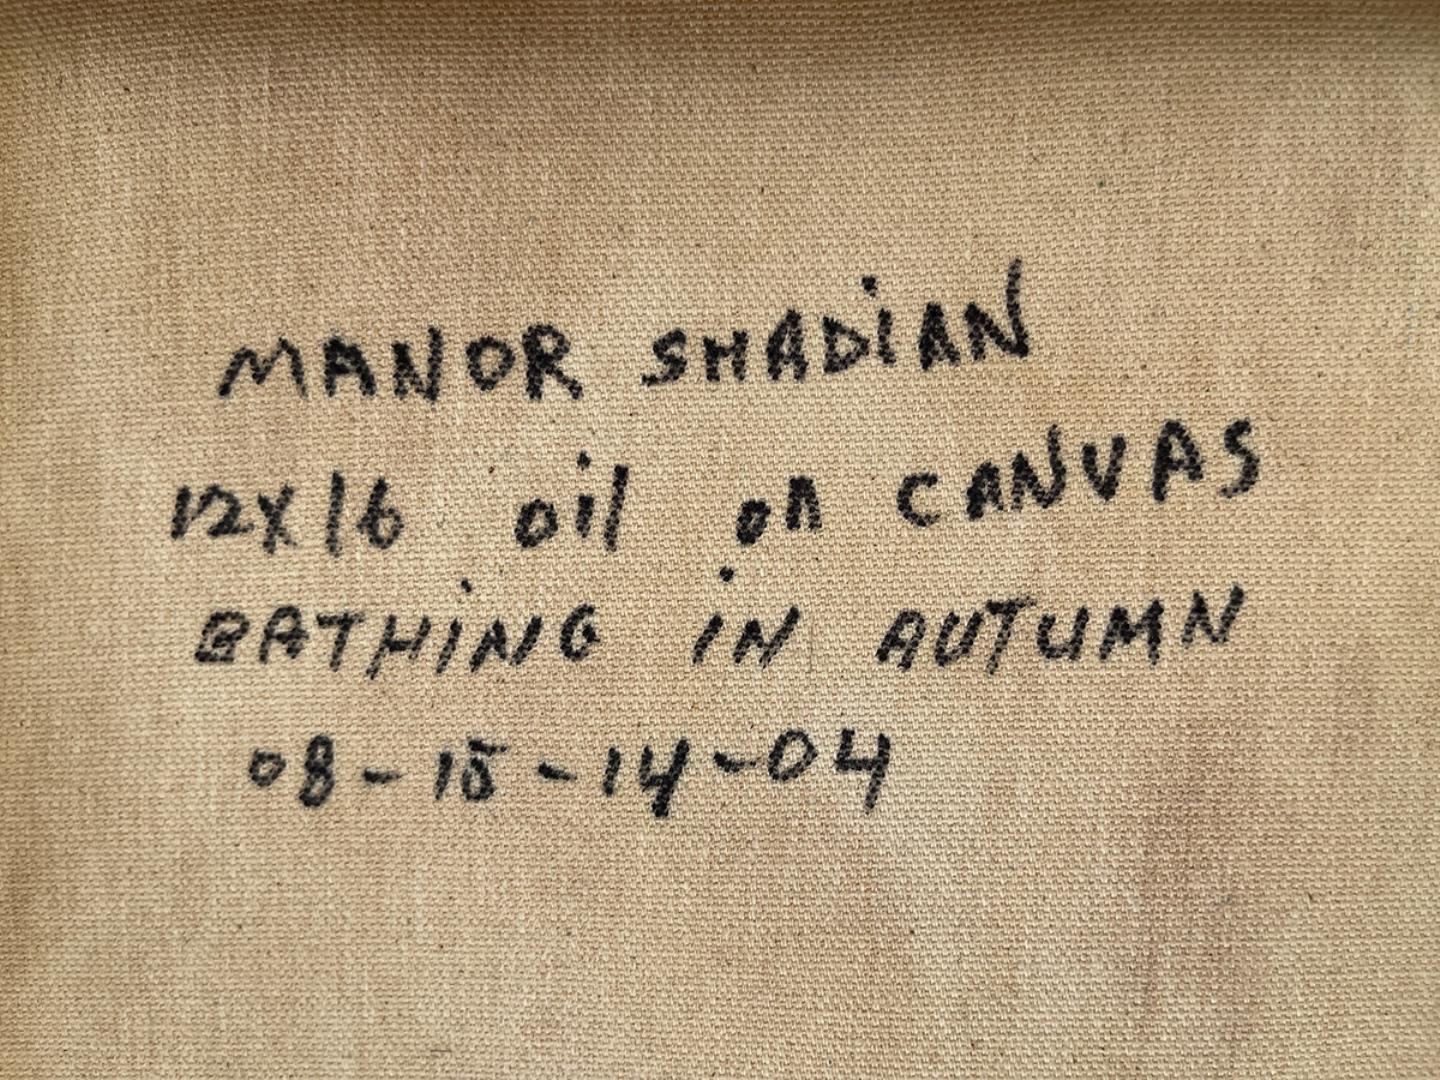 MANOR SHADiAN
12X16 oil on CANVAS
BATHiNG iN AUTUMN
08-15-14-04